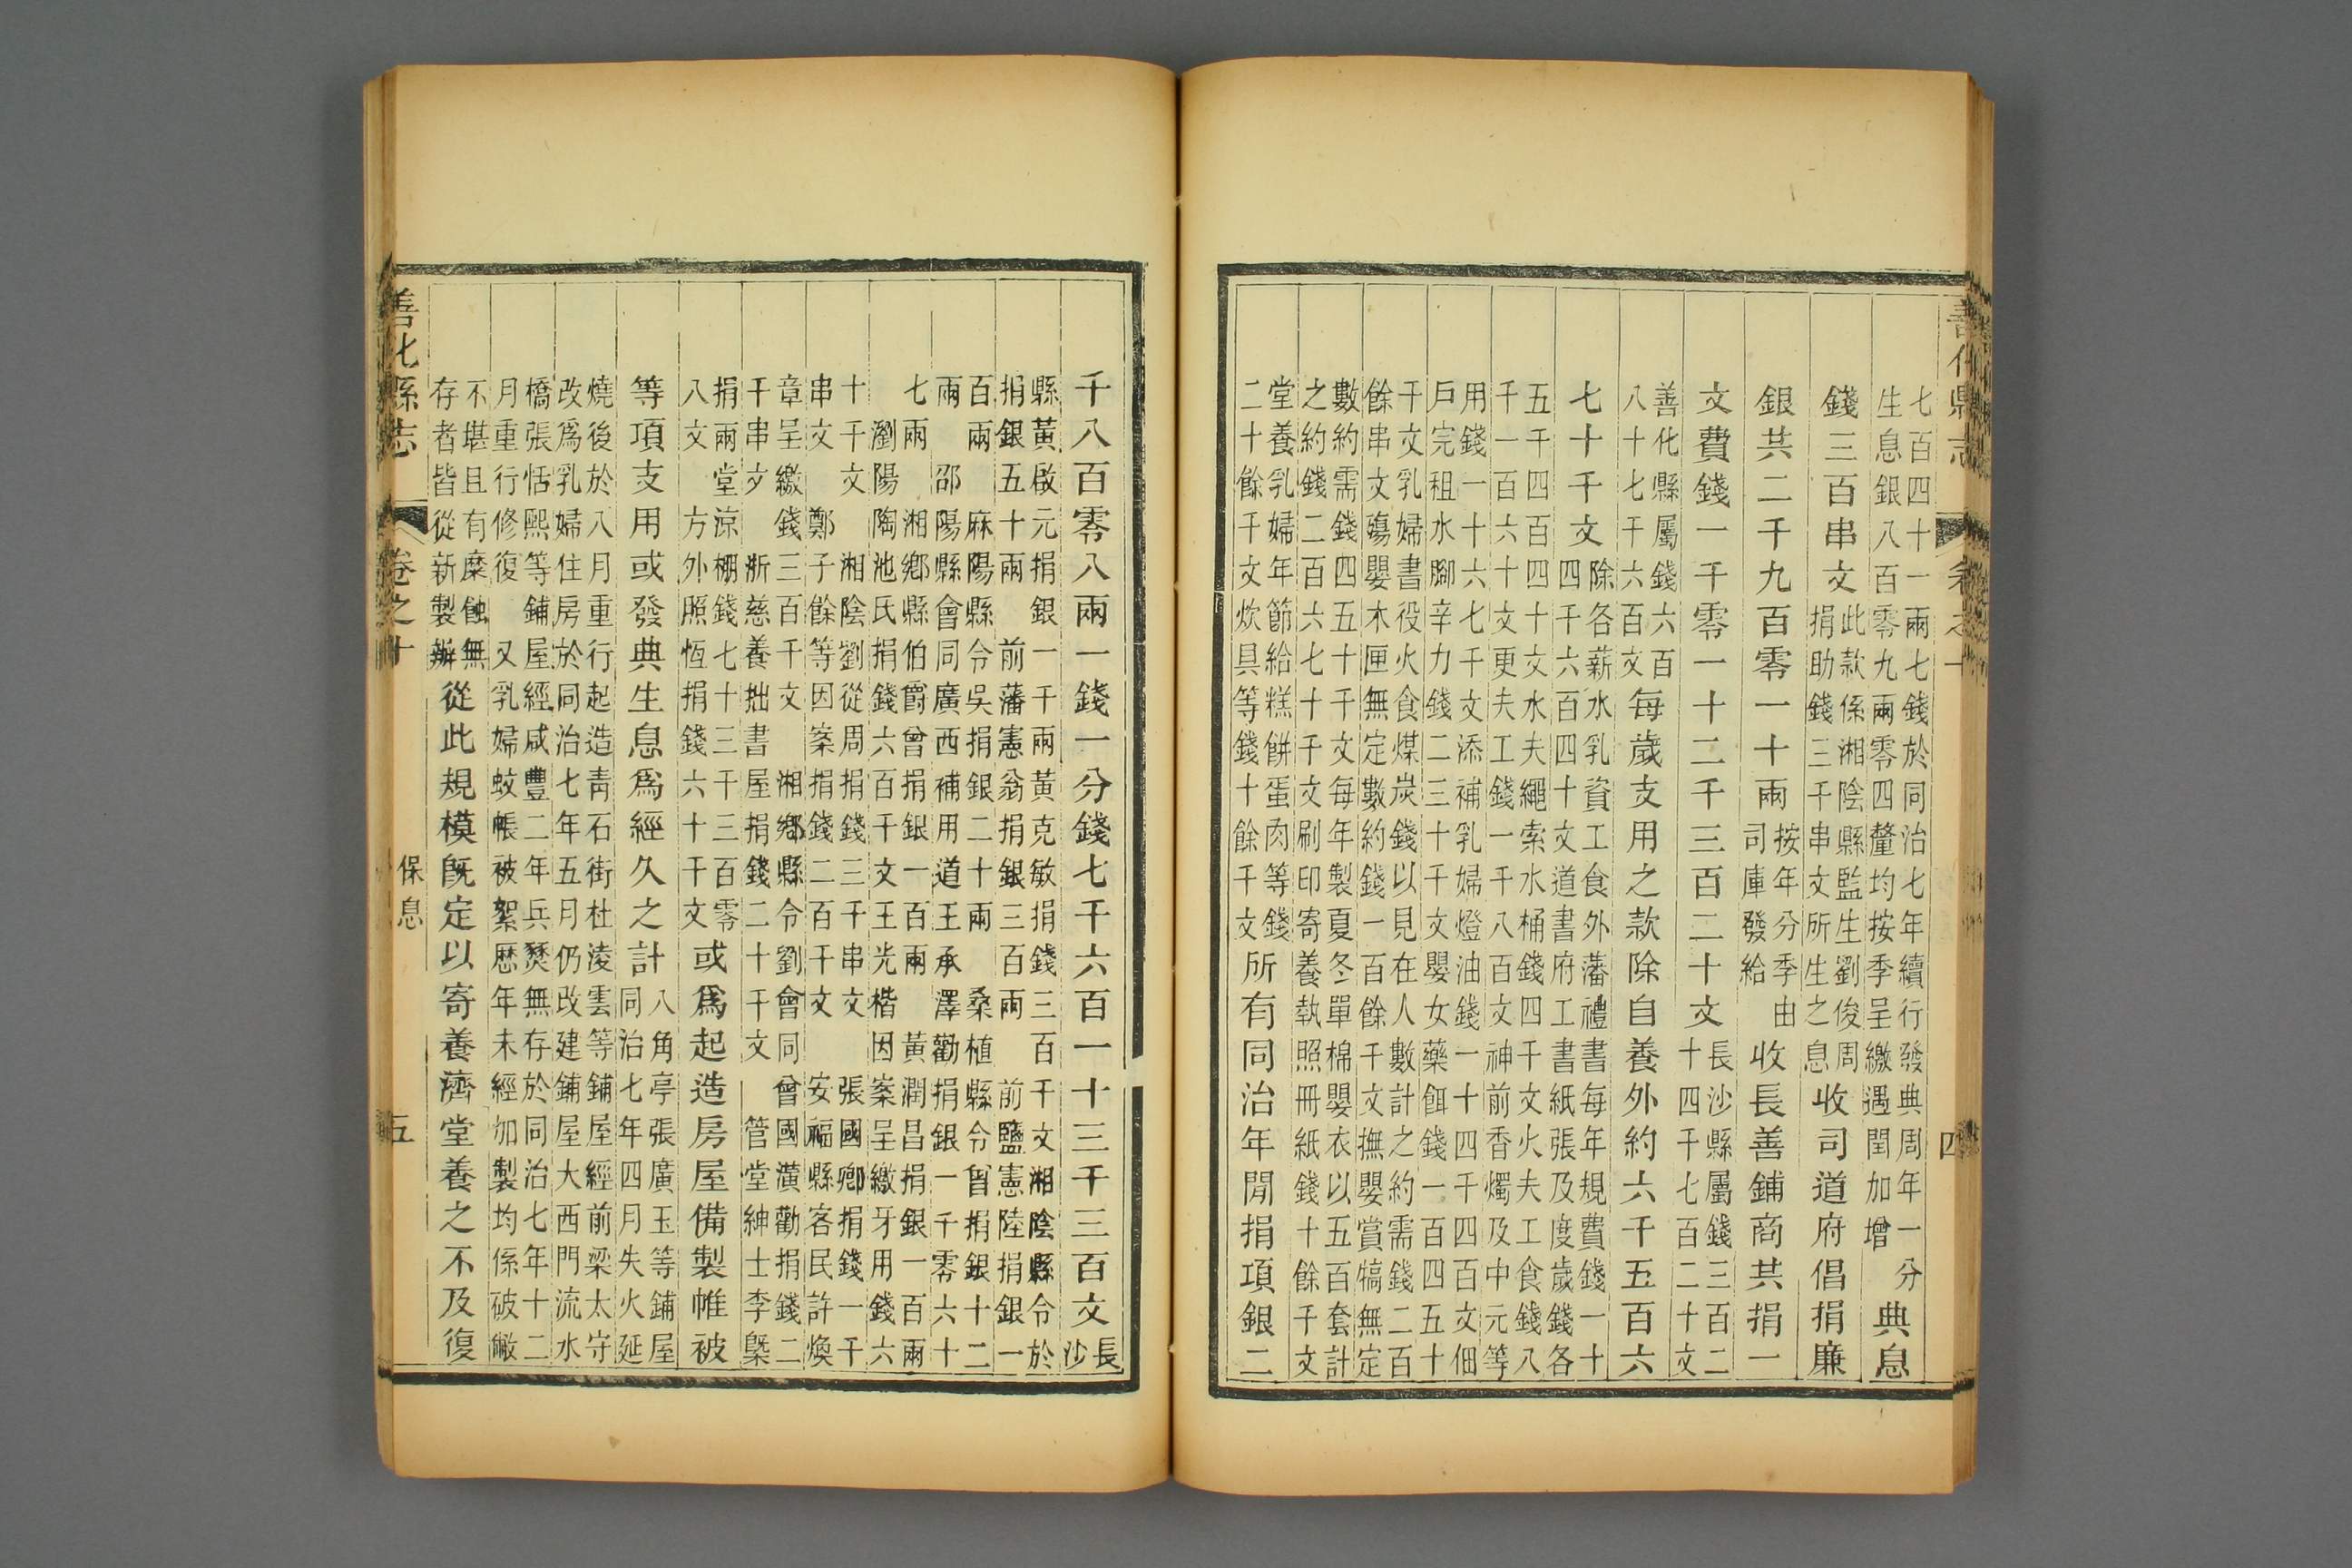 善化縣志 卷之十 四
七百四十一兩七錢於同治七年續行發典周年一分
生息銀八百零九兩零四釐均按季呈繳遇閏加增
典息
錢三百串文
此款係湘陰縣監生劉俊周
捐助錢三千串文所生之息
收司道府倡捐廉
銀共二千九百零一十兩
按年分季由
司庫發給
收長善鋪商共捐一
文費錢一千零一十二千三百二十文
長沙縣屬錢三百二
十四千七百二十文
善化縣屬錢六百
八十七千六百文
每歲支用之款除自養外約六千五百六
七十千文
除各薪水乳資工食外藩禮書每年規費錢一十
四千六百四十文道書府工書紙張及度歲錢各
五千四百四十文水夫繩索水桶錢四千文火夫工食錢八
千一百六十文更夫工錢一千八百文神前香燭及中元等
用錢一十六七千文添補乳婦燈油錢一十四千四百文佃
戶完租水腳辛力錢二三十千文嬰女藥餌錢一百四五十
千文乳婦書役火食煤炭錢以見在人數計之約需錢二百
餘串文殤嬰木匣無定數約錢一百餘千文撫嬰賞犒無定
數約需錢四五十千文每年製夏冬單棉嬰衣以五百套計
之約錢二百六七十千文刷印寄養執照冊紙錢十餘千文
堂養乳婦年節給糕餅蛋肉等錢
二十餘千文炊具等錢十餘千文
所有同治年閒捐項銀二
千八百零八兩一錢一分錢七千六百一十三千三百文
長
沙
縣黃啟元捐銀一千兩黃克敏捐錢三百千文湘陰縣令於
捐銀五十兩 前藩憲翁捐銀三百兩 前鹽憲陸捐銀一
百兩 麻陽縣令吳捐銀二十兩 桑植縣令曾捐銀十二
兩 邵陽縣會同廣西補用道王承澤勸捐銀一千零六十
七兩 湘鄉縣伯爵曾捐銀一百兩 黃潤昌捐銀一百兩
瀏陽陶池氏捐錢六百千文王光楷因案呈繳牙用錢六
十千文 湘陰劉從周捐錢三千串文 張國卿捐錢一千
串文 鄭子餘等因案捐錢二百千文 安福縣客民許煥
章呈繳錢三百千文 湘鄉縣令劉會同曾國潢勸捐錢二
千串文 浙慈養拙書屋捐錢二十千文 管堂紳士李槩
捐兩堂涼棚錢七十三千三百零
八文 方外照恆捐錢六十千文
或爲起造房屋備製帷被
等項支用或發典生息爲經久之計
八角亭張廣玉等鋪屋
同治七年四月失火延
燒後於八月重行起造靑石街杜淩雲等鋪屋經前梁太守
改爲乳婦住房於同治七年五月仍改建鋪屋大西門流水
橋張恬熙等鋪屋經咸豐二年兵燹無存於同治七年十二
月重行修復 又乳婦蚊帳被絮歷年未經加製均係破敝
不堪且有糜蝕無
存者皆從新製辦
從此規模旣定以寄養濟堂養之不及復
善化縣志 卷之十 保息 五